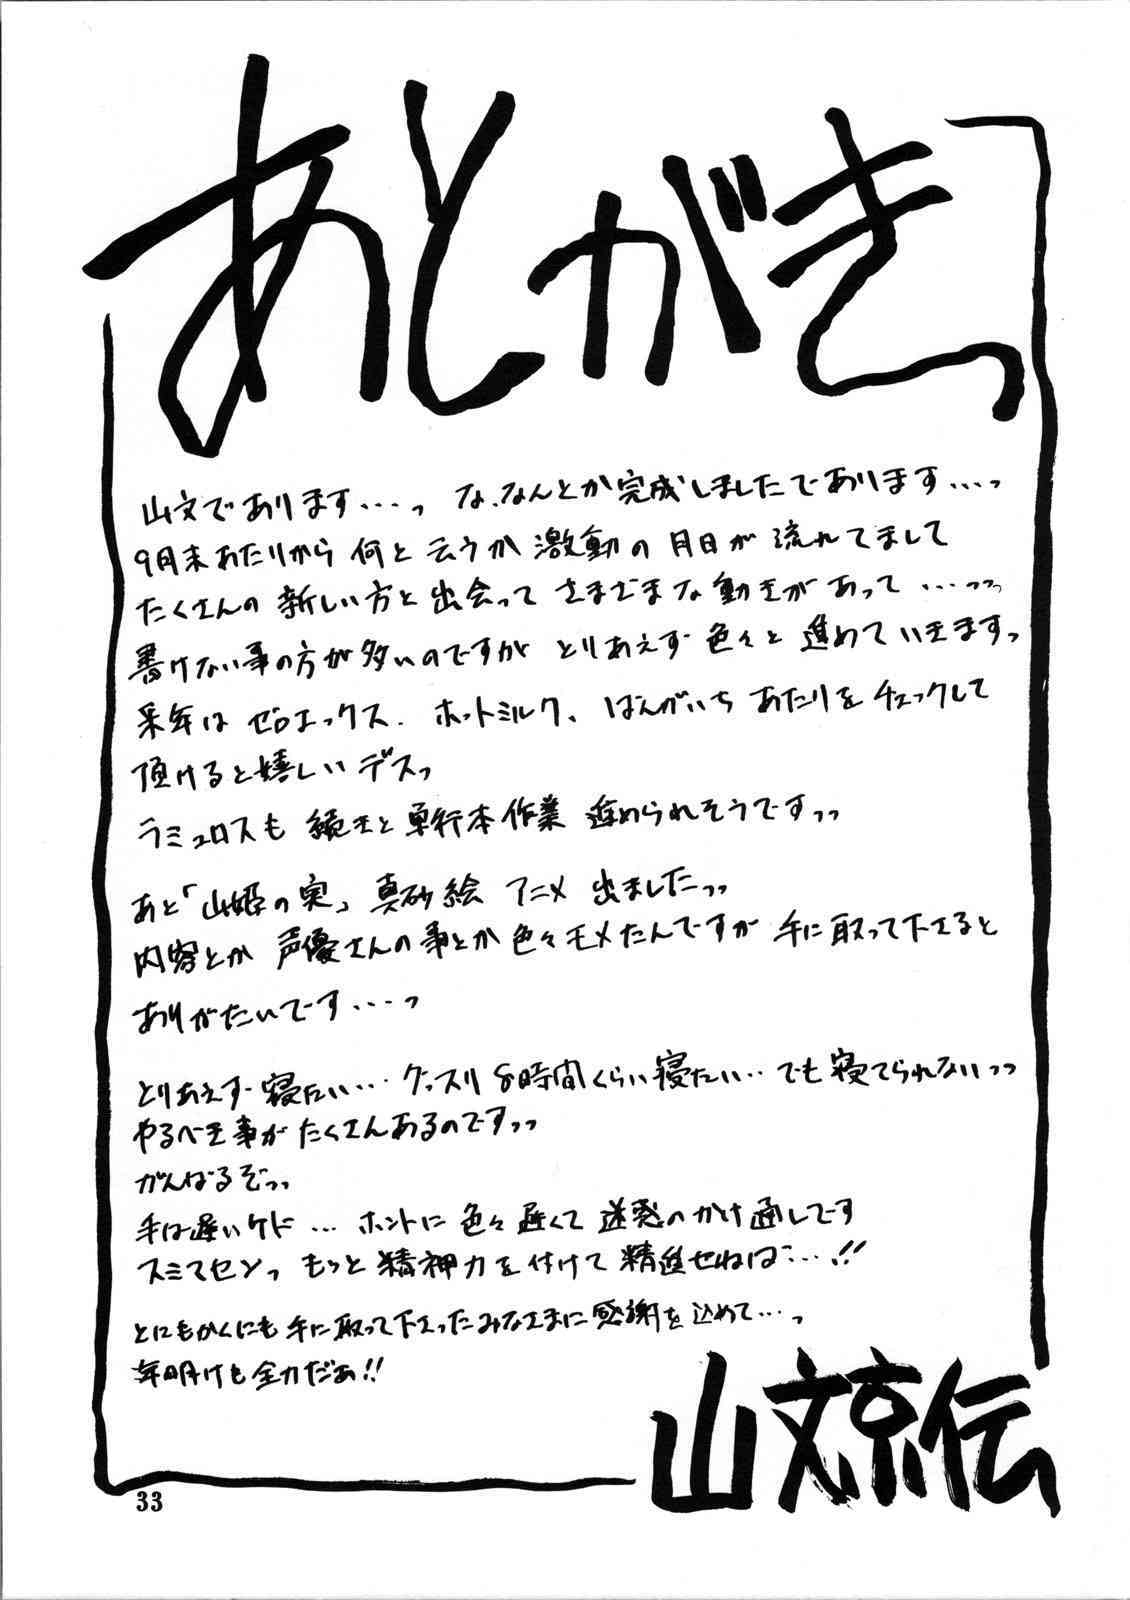 あとがきっ
山文であります・・・っ な、なんとか完成しましたであります・・・っ
9月末あたりから 何と云うか 激動の 月日が 流れてまして
たくさんの 新しい方と 出会って さまざまな動きがあって ・・・っっっ
書けない事の方が多いのですが とりあえず 色々と 進めていきますっ
来年は ゼロエックス、ホットミルク、ばんがいち あたりを チェックして
頂けると嬉しい デスっ
ラミュロスも 続きと 単行本作業 進められそうですっっ
あと「山姫の実」真砂絵 アニメ 出ましたっっ
内容とか 声優さんの事とか 色々モメたんですが 手に取って下さると
ありがたいです・・・っ
とりあえず 寝たい・・・グッスリ 8時間くらい 寝たい・・・でも 寝てられないっっ
やるべき事が たくさんあるのですっっ
がんばるぞっっ
手は遅いケド ・・・ ホントに 色々 遅くて 迷惑の かけ通しです
スミマセンっ もっと 精神力を付けて 精進せねば・・・!!
とにもかくにも 手に取って下さったみなさまに 感謝を込めて・・・っ
年明けも 全力だぁ!!
山文京伝
33